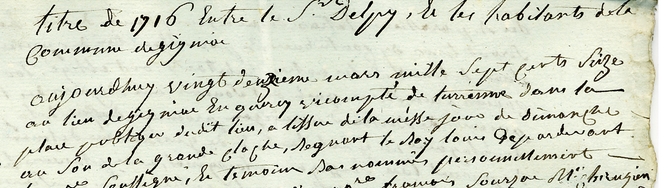 titre de 1716 Entre le Sr Delpy, Et les habitants de la
Commune degignac
aujourdhuy vingt deuxieme mars mille Sept cents Seize
au lieu degignac En quercy vicompté de turrenne dans la
place publique dudit lieu, a lissue de la messe jour de dimanche
au Son de la grande cloche, Regnant le Roy louis
Soussigné, Et temoins bas nommés personnellement
françois